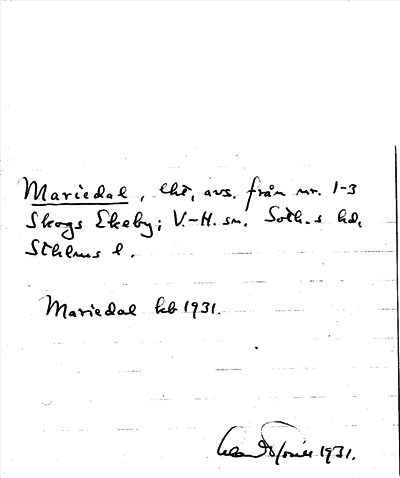 Mariedal, lht, avs. från nr. 1-3
Skogs Ekeby; V.-H. sn. Soth.s hd,
Sthlms l.
Mariedal kb 1931.
1931.